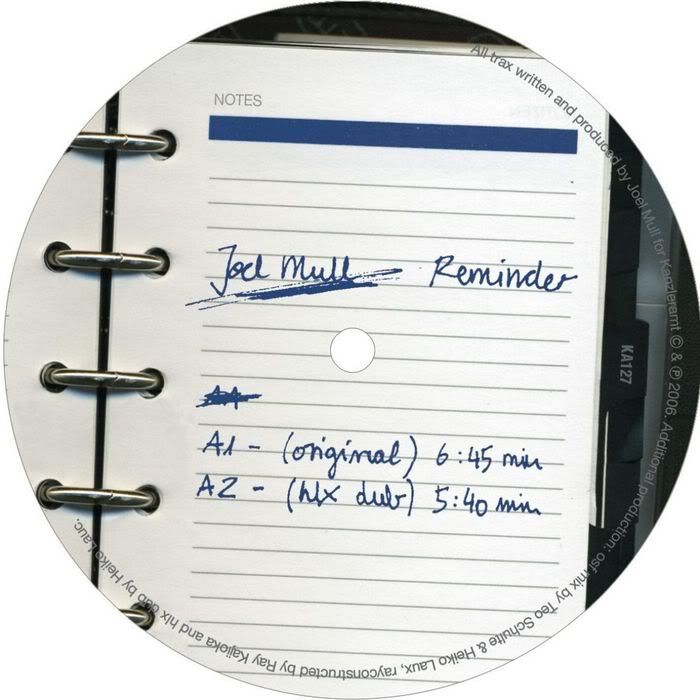 NOTES
Joel Mull Reminder
A1 - (original) 6:45 min
A2 - (hlx dub) 5:40 min
KA127
All trax written and produced by Joel Mull for Kanzleramt © & ℗ 2006. Additional production: osf mix by Teo Schulte & Heiko Laux, rayconstructed by Ray Kajioka and hlx dub by Heiko Lauc.